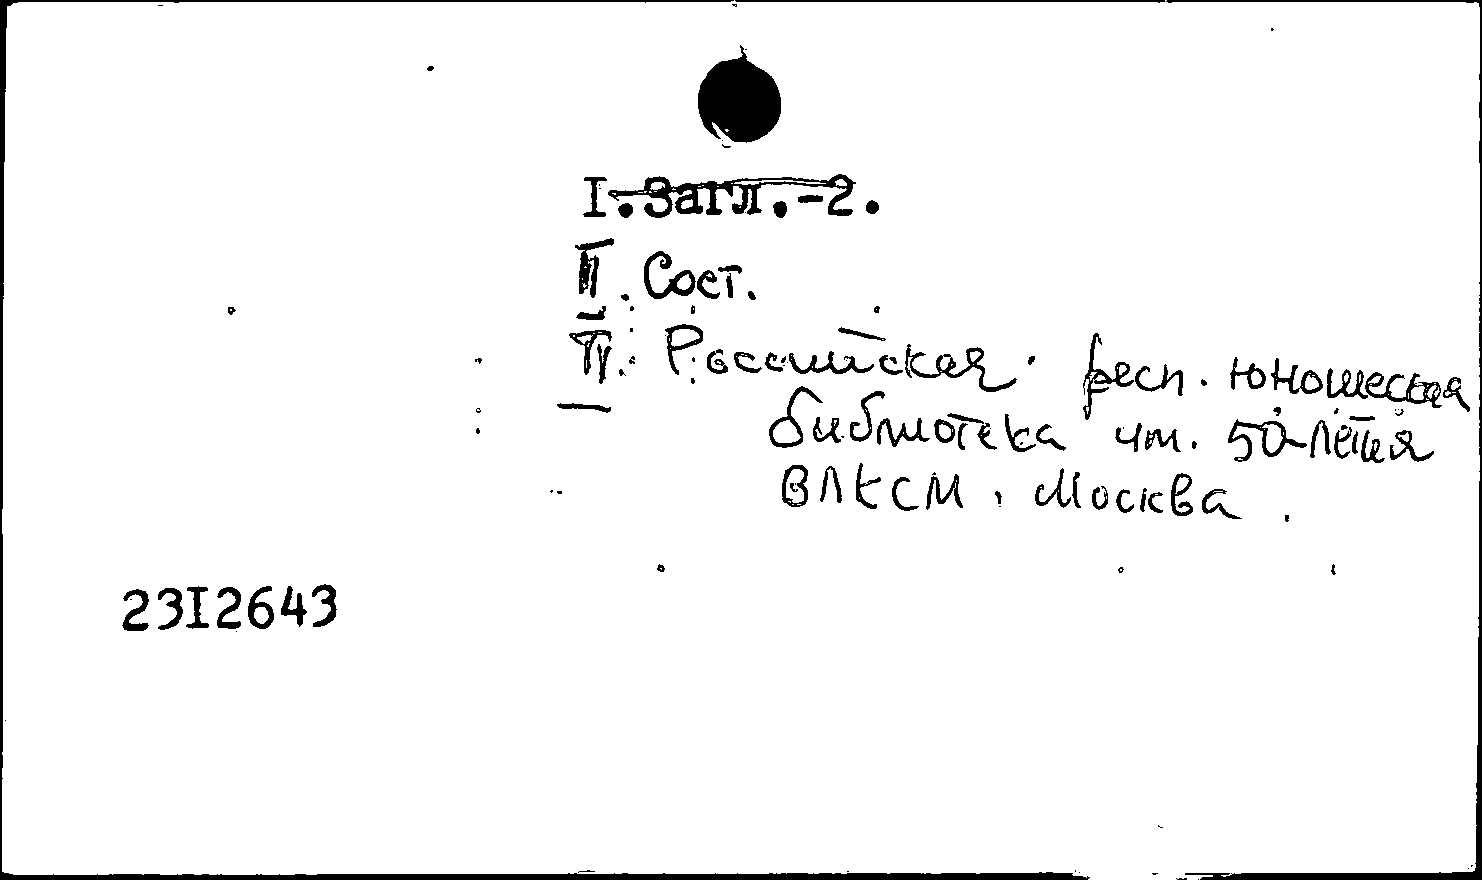 I.Загл.-2.
II. Сост.
IV. Российская респ. юношеская
библиотека им. 50-летия
ВЛКСМ. Москва.
23I2643